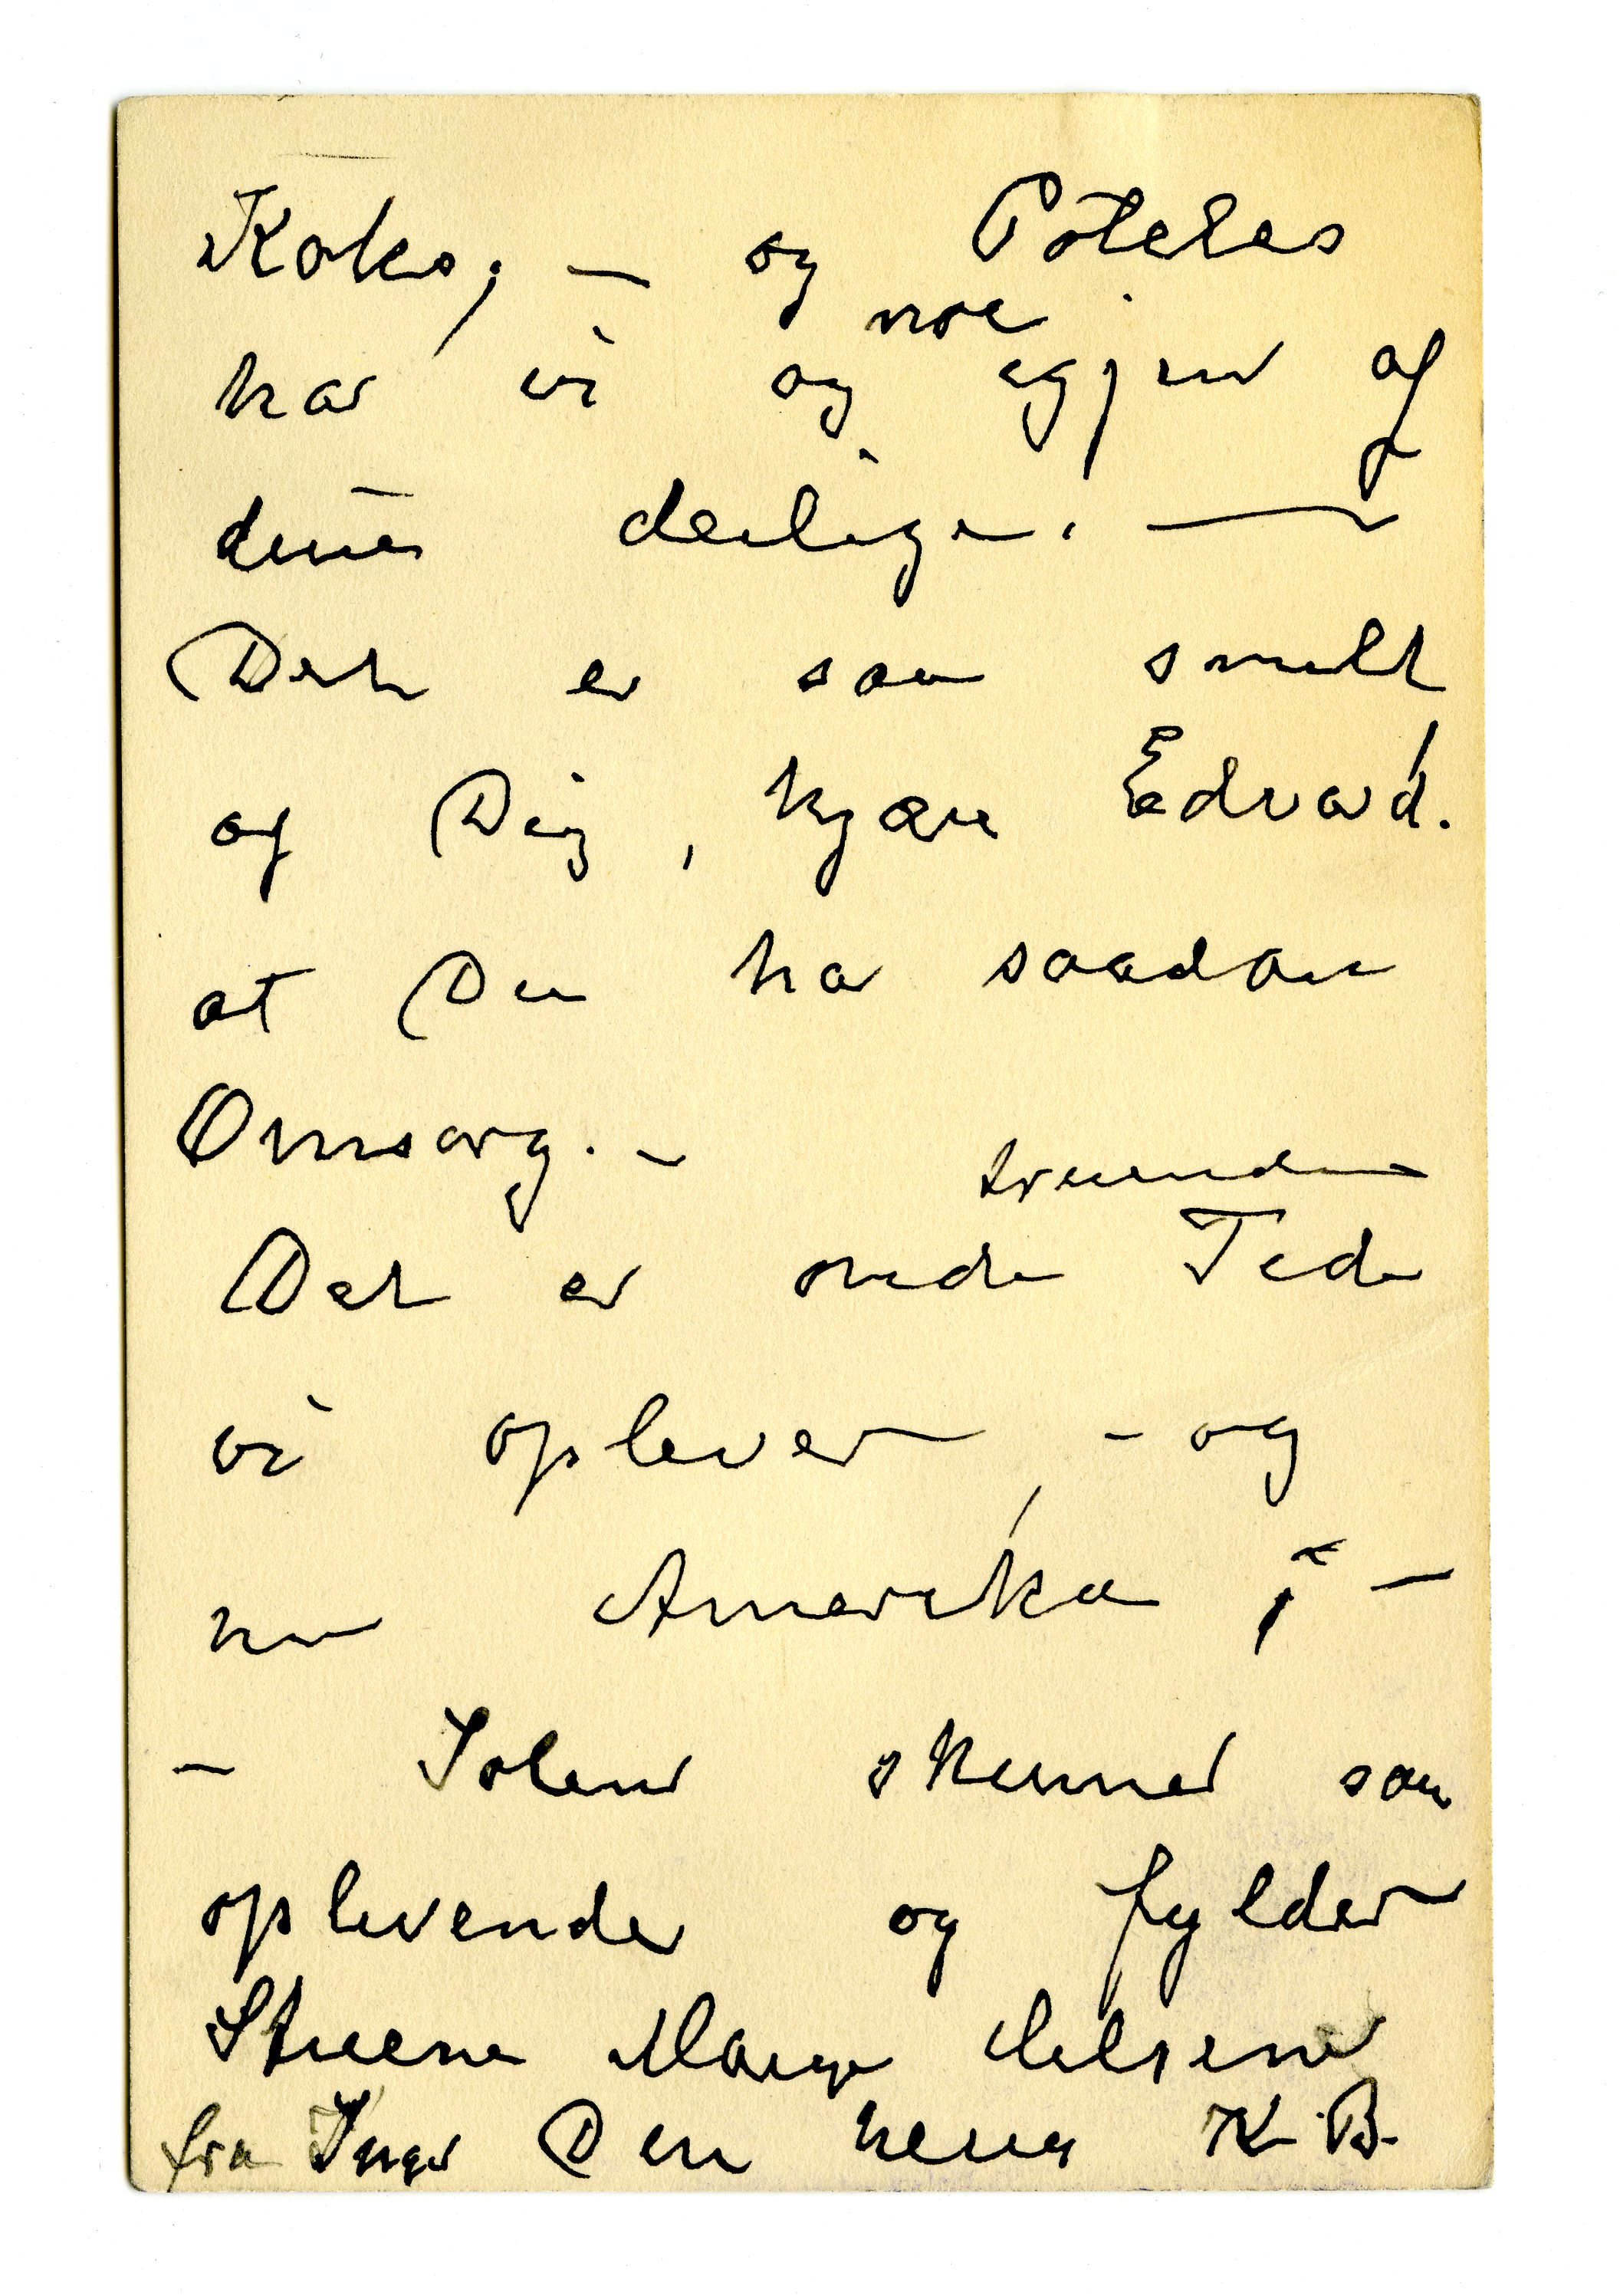 Koks; — og Poteter
har vi og noe igjen af
dine deilige. —
Det er saa snilt
af Dig, kjære Edvard.
at Du har saadan
Omsorg. —
Det er onde truende Tide
vi oplever, - og
nu Amerika
— Solen skinner saa
oplivende og fylder
Stuene Mange Hilsener
fra Inger Din heng K B.